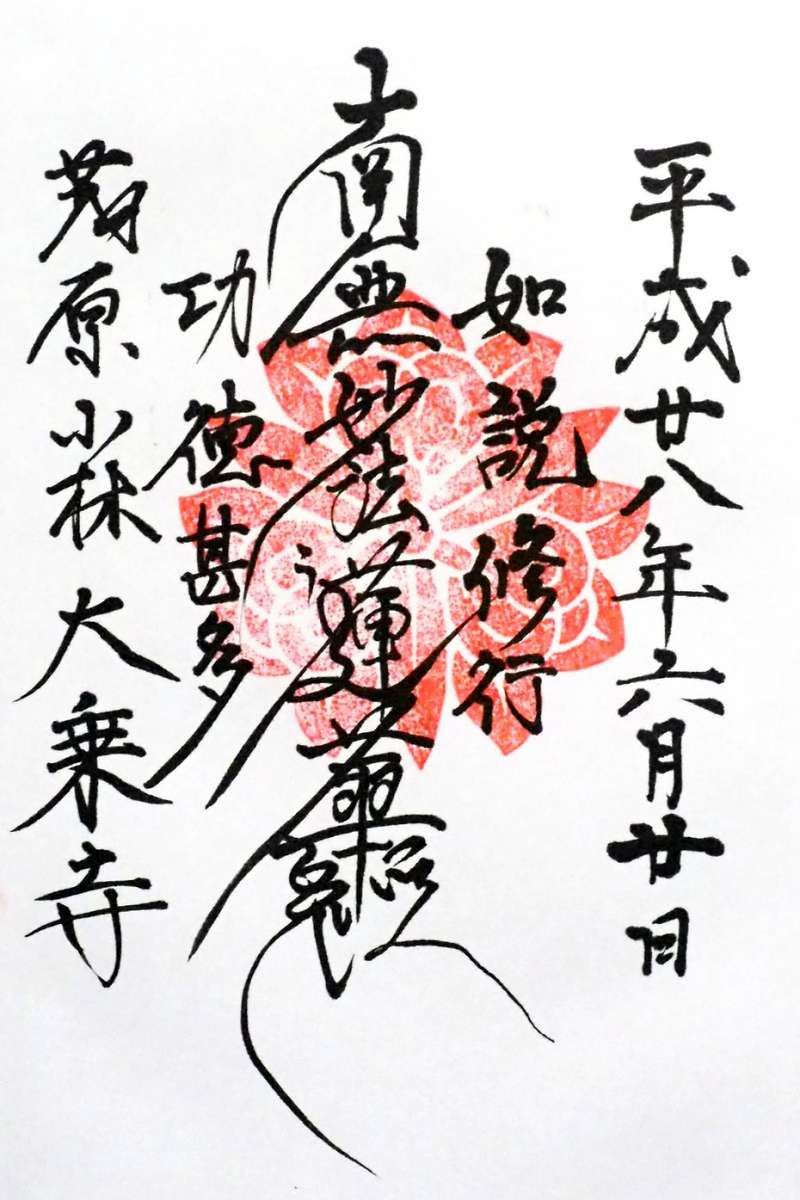 平成廿八年六月廿日
如説修行
南無妙法蓮華経
功徳甚多
茂原小林大乗寺